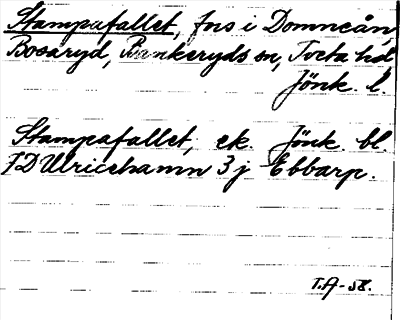 Stampafallet, fns i Domneån,
Bosaryd, Bankeryds sn, Tveta hd
Jönk. l.
Stampafallet, ek. Jönk. bl.
7D Ulricehamn 3j Ebbarp.
T.A-58.